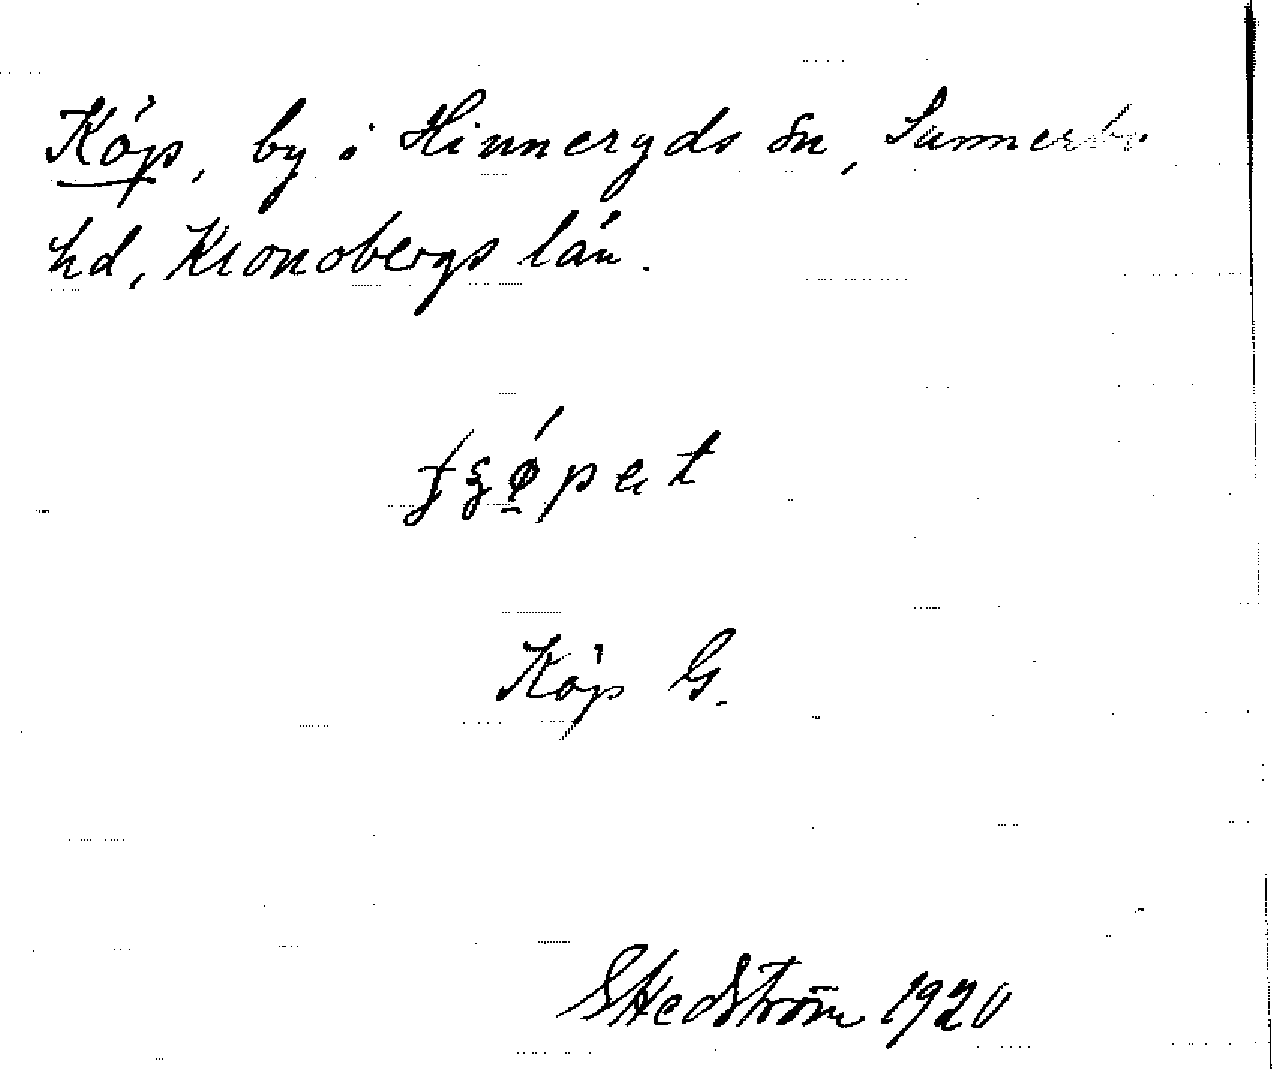 Köp, by i Hinneryds sn, Sunnerbo
hd, Kronobergs län.
Köp G.
S Hedström 1920